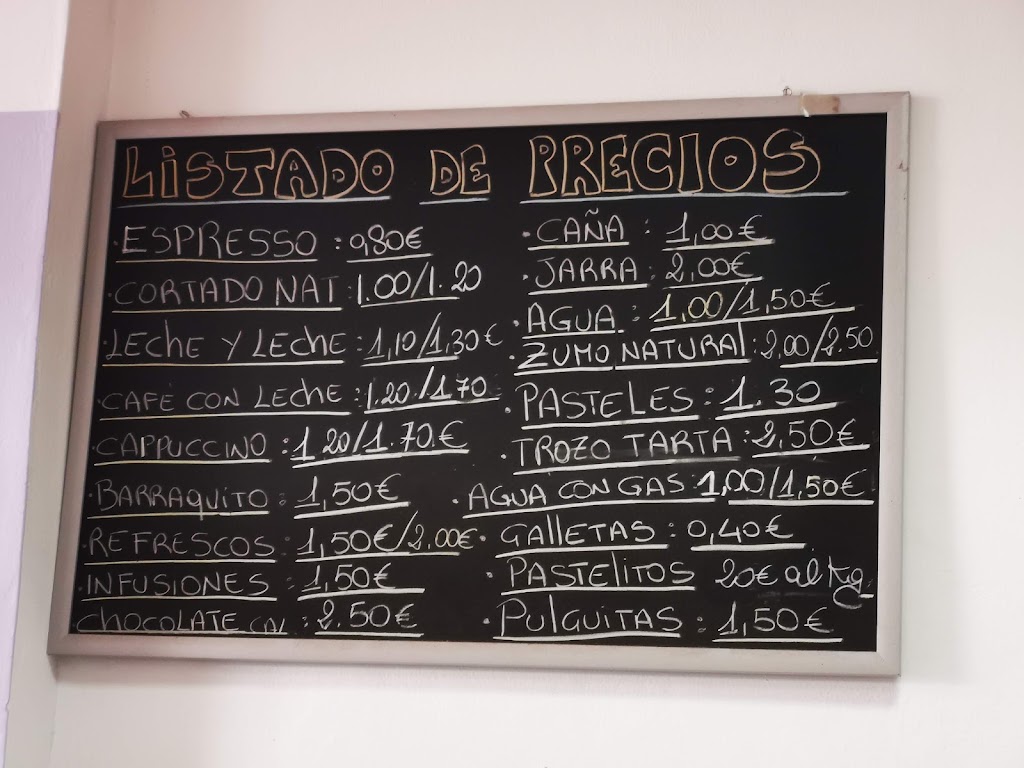 LiSTADO DE PRECIOS
· ESPRESSO : 0,80€
· CORTADO NAT : 1.00/1.20
· LEChe Y LEChe : 1,10/1,30€
· CAFÉ CON LEChe : 1.20./1.70
· CAPPUCCINO : 1.20/1.70.€
· BARRAQUITO : 1,50€
· REFRESCOS : 1,50€/2.00€
· INFUSIONES : 1,50€
· ChOCOLATE : 2.50€
· CAÑA : 1,00€
· JARRA : 2,00€
· AGUA : 1,00/1,50€
· ZUMO NATURAL : 2,00/2.50
· PASTELES : 1.30
· TROZO TARTA : 2,50€
· AGUA CON GAS : 1,00/1,50€
· GAllETAS : 0,40€
· PASTElITOS 20€ al Kg.
· PUlGUITAS : 1,50€